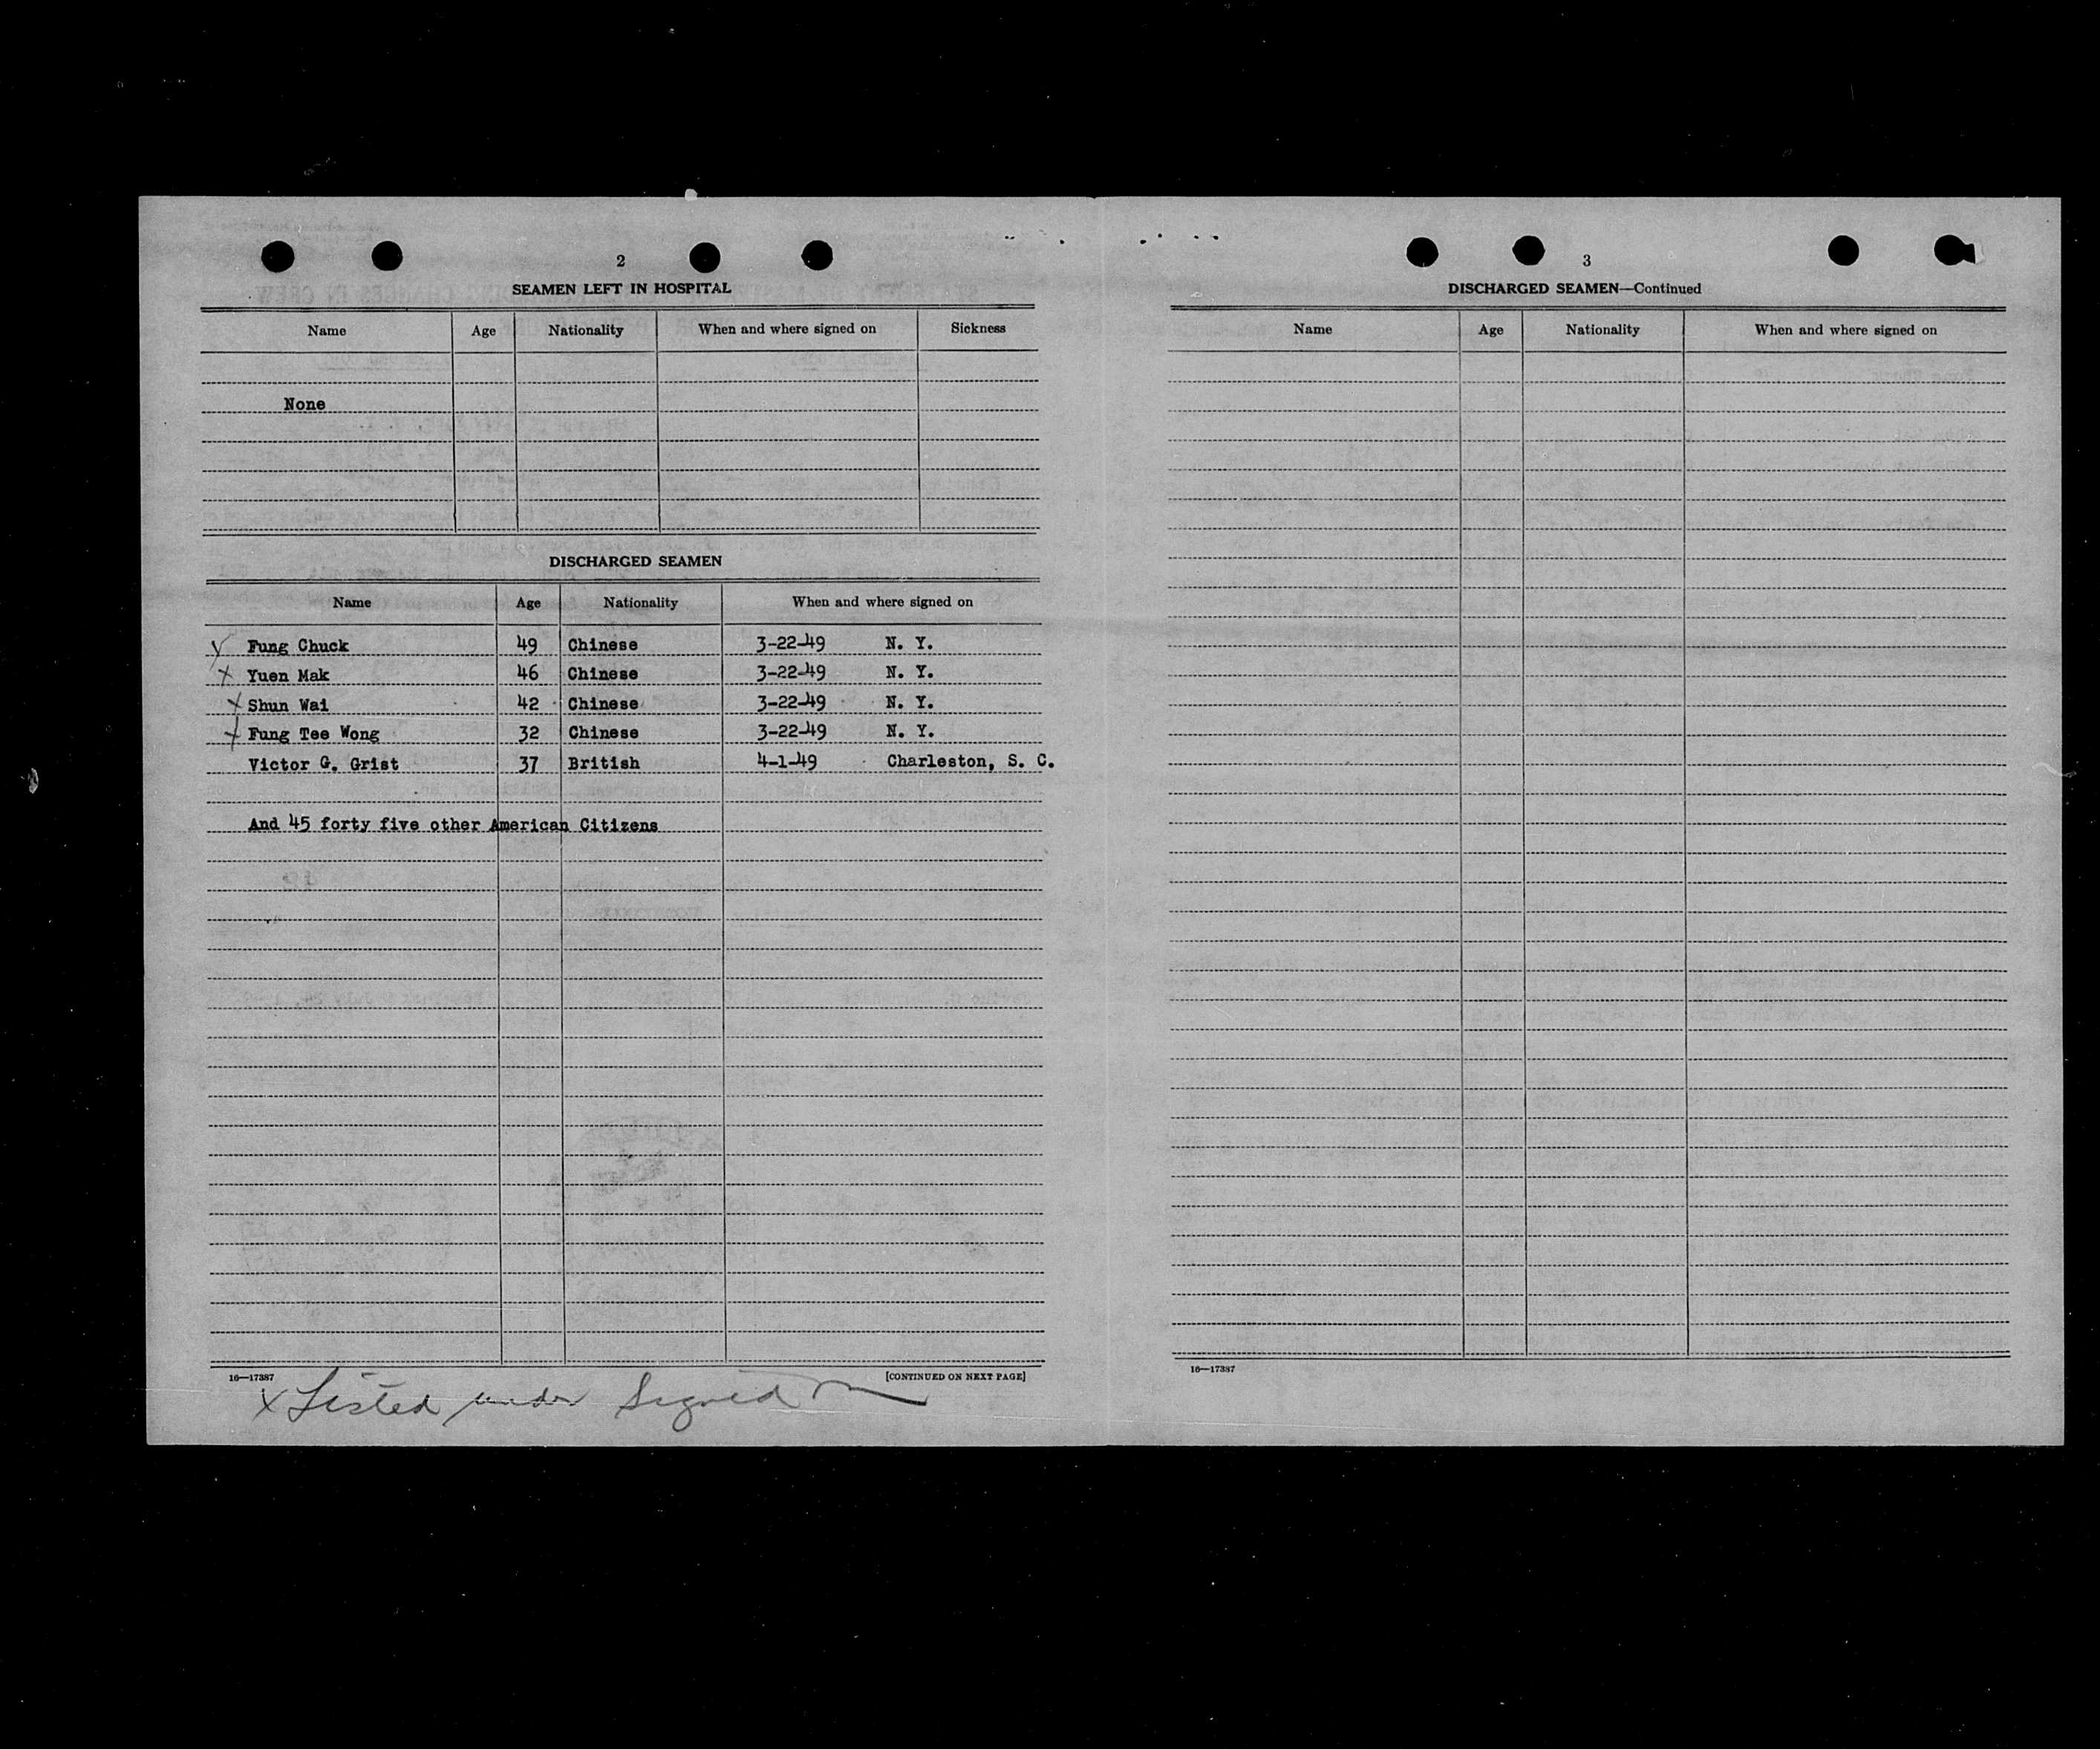 2
SEAMEN LEFT IN HOSPITAL
Name Age Nationality When and where signed on Sickness
None
DISCHARGED SEAMEN
Name Age Nationality When and where signed on
Fung Chuck 49 Chinese 3-22-49 N. Y.
x Yuen Mak 46 Chinese 3-22-49 N. Y.
x Shun Wai 42 Chinese 3-22-49 N. Y.
x Fung Tee Wong 32 Chinese 3-22-49 N. Y.
Victor G. Grist 37 British 4-1-49 Charleston, S. C.
And 45 forty five other American Citizens
16—17387 [CONTINUED ON NEXT PAGE]
x Listed under Signed on
3
DISCHARGED SEAMEN—Continued
Name Age Nationality When and where signed on
16—17387